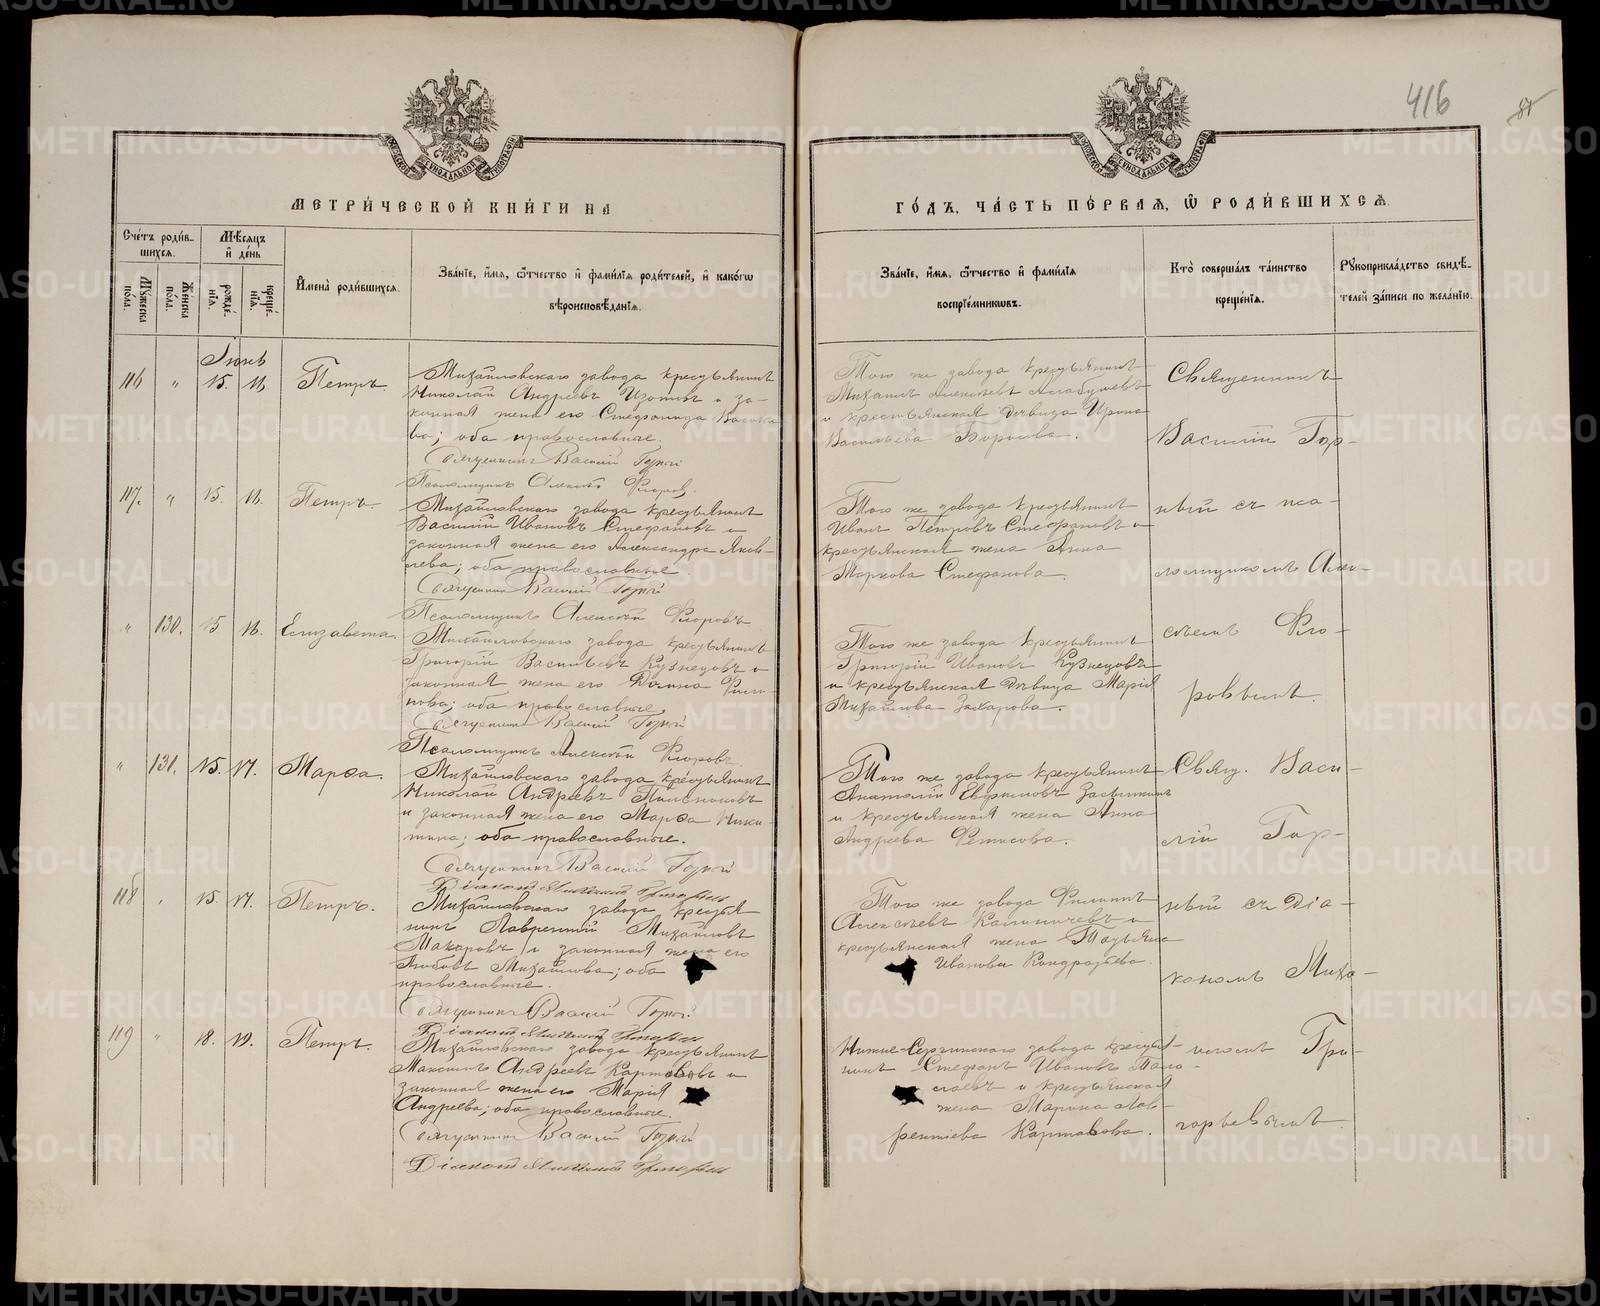 416
МОСКОВСКОЙ СѴНОДАЛЬНОЙ ТИПОГРАФІИ
МОСКОВСКОЙ СѴНОДАЛЬНОЙ ТИПОГРАФІИ
МЕТРИ́ЧЕСКОЙ КНИ́ГИ НА
ГО́ДЪ, ЧА́СТЬ ПЕ́РВАЯ, Ѿ РОДИ́ВШИХСЯ.
Сче́тъ роди́в-
шихся.
Мꙋжеска по́ла.
Женска по́ла.
Мѣ́сяцъ
и҆ де́нь
рожде́-
нїя.
креще́-
нїя.
И҆мена̀ роди́вшихся.
Зва́нїе, и҆́мя, ѻ҆́тчество и҆ фами́лїя роди́телей, и҆ како́гѡ
вѣроисповѣ́данїя.
Зва́нїе, и҆́мя, ѻ҆́тчество и҆ фами́лїя
воспрїе́мникѡвъ.
Кто̀ соверша́лъ та́инство
креще́нїя.
Рꙋкоприкла́дство свидѣ́-
телей за́писи по жела́нїю.
Іюнь
116 " 15. 16. Петръ.
Михайловскаго завода крестьянинъ
Николай Андреевъ Изотовъ и за-
конная жена его Стефанида
ва; оба православные.
Священникъ Василій Горный
Псаломщикъ Алексѣй Флоровъ.
Того же завода крестьянинъ
Михаилъ Алексѣевъ
и крестьянская дѣвица Ирина
Васильева
Священникъ
Василій Гор-
117. " 15. 16. Петръ.
Михайловскаго завода крестьянинъ
Василій Ивановъ Стефановъ и
законная жена его Александра Яков-
лева; оба православные
Священникъ Василій Горный
Псаломщикъ Алексѣй Флоровъ
Того же завода крестьянинъ
Иванъ Петровъ Стефановъ и
крестьянская жена Анна
Маркова Стефанова.
ный съ пса-
ломщикомъ Алек-
" 130. 15 16. Елизавета.
Михайловскаго завода крестьянинъ
Григорій Васильевъ Кузнецовъ и
законная жена его Домна Фили-
пова; оба православные
Священникъ Василій Горный
Псаломщикъ Алексѣй Флоровъ
Того же завода крестьянинъ
Григорій Ивановъ Кузнецовъ
и крестьянская дѣвица Марія
Михайлова Захарова.
сѣемъ Фло-
ровымъ.
" 131. 15. 17. Марѳа.
Михайловскаго завода крестьянинъ
Николай Андреевъ
и законная жена его Марѳа Ники-
тина; оба православные.
Священникъ Василій Горный
Діаконъ Михаилъ Григорьевъ
Того же завода крестьянинъ
Анатолій Евфимовъ
и крестьянская жена Анна
Андреева Фетисова.
Свящ. Васи-
лій Гор-
118 " 15. 17. Петръ.
Михайловскаго завода крестья-
нинъ Лаврентій Михайловъ
Макаровъ и законная жена его
Любовь Михайлова; оба
православные.
Священникъ Василій Горный
Діаконъ Михаилъ Григорьевъ
Того же завода Филиппъ
Алексѣевъ Калиничевъ и
крестьянская жена Татьяна
Иванова Кондратьева.
ный съ Діа-
кономъ Миха-
119 " 18. 19. Петръ.
Михайловскаго завода крестьянинъ
Максимъ Андреевъ Картавовъ и
законная жена его Марія
Андреева; оба православные.
Священникъ Василій Горный
Діаконъ Михаилъ Григорьевъ
Нижне-Сергинскаго завода крестья-
нинъ Стефанъ Ивановъ
и крестьянская
жена Марина Лав-
рентіева Картавова.
иломъ Гри-
горьевымъ.
METRIKI.GASO-URAL.RU